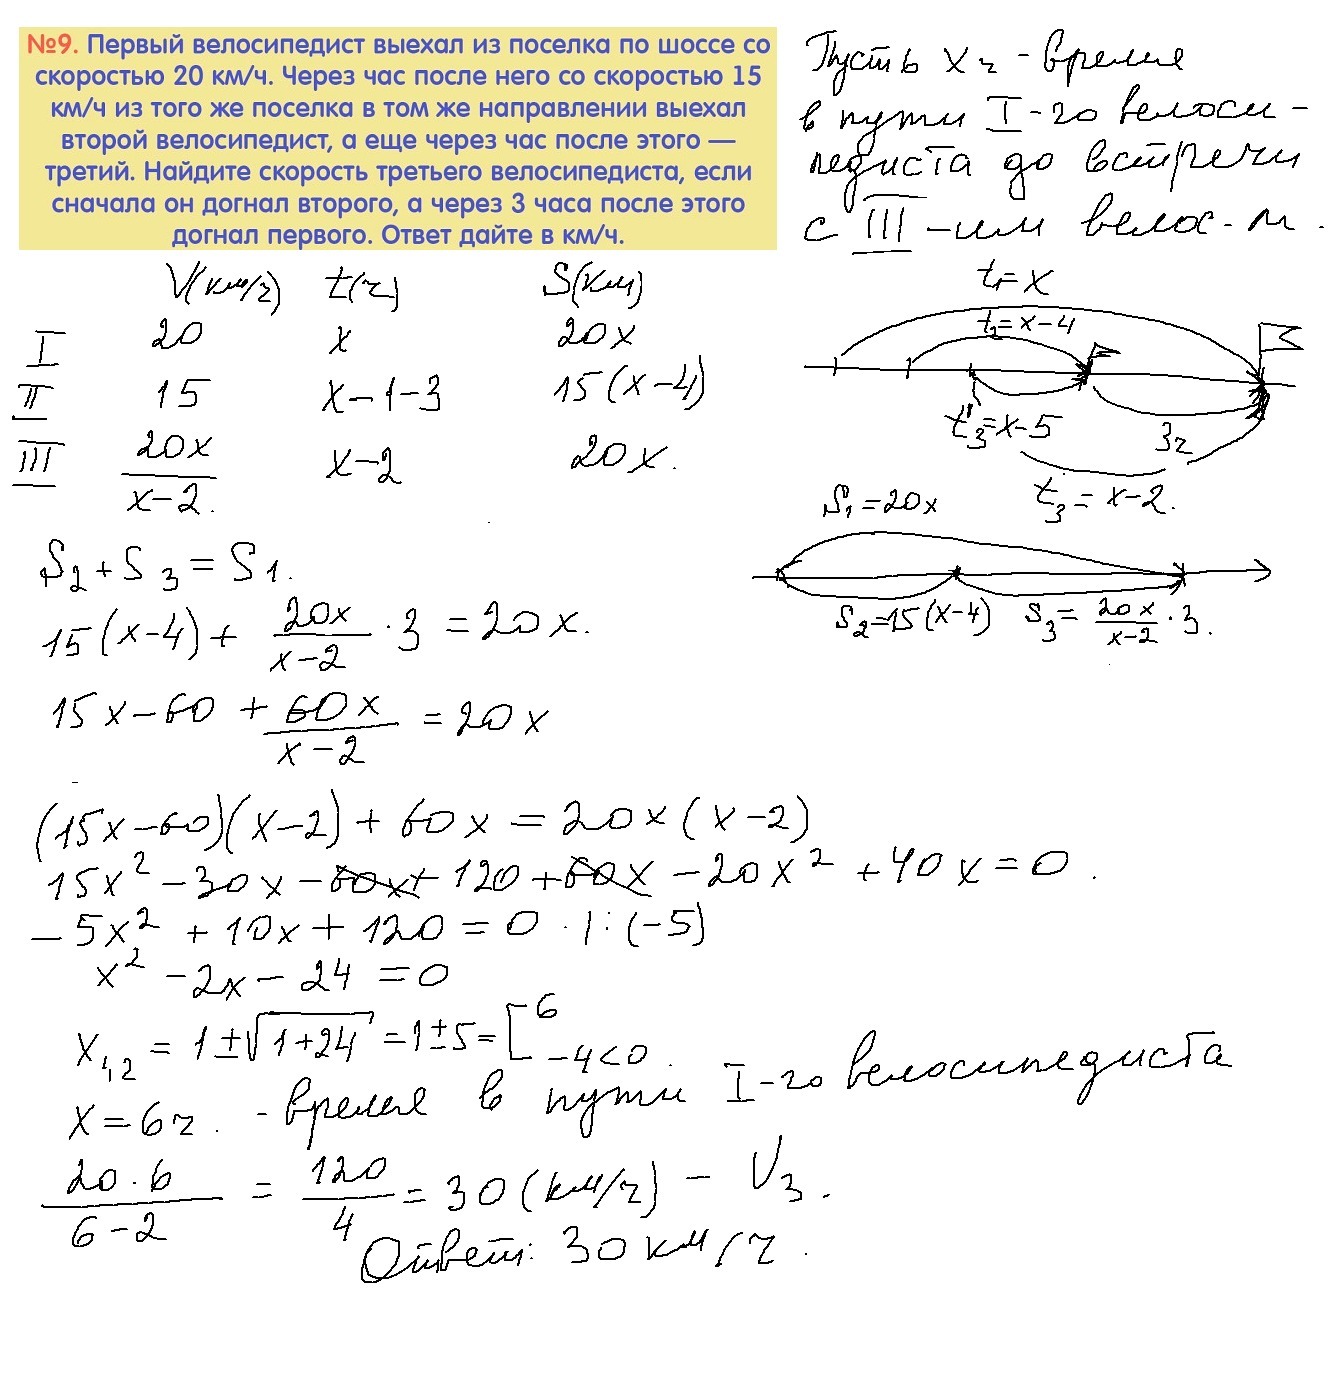 №9. Первый велосипедист выехал из поселка по шоссе со
скоростью 20 км/ч. Через час после него со скоростью 15
км/ч из того же поселка в том же направлении выехал
второй велосипедист, а еще через час после этого —
третий. Найдите скорость третьего велосипедиста, если
сначала он догнал второго, а через 3 часа после этого
догнал первого. Ответ дайте в км/ч.
Пусть x ч - время
в пути I-го велоси-
педиста до встречи
с III-им велос-м.
V(км/ч) t(ч) S(км)
I 20 x 20x
II 15 x-1-3 15(x-4)
III 20x/(x-2). x-2 20x.
t₁=x
t₂=x-4
t'₃=x-5 3ч
t₃=x-2.
S₁=20x
S₂=15(x-4) S₃=20x/(x-2)·3.
S₂+S₃=S₁.
15(x-4)+20x/(x-2)·3=20x.
15x-60+60x/(x-2)=20x
(15x-60)(x-2)+60x=20x(x-2)
15x²-30x-60x+120+60x-20x²+40x=0.
-5x²+10x+120=0.|:(-5)
x²-2x-24=0
x₁,₂=1±√(1+24)=1±5=[6
-4<0.
x=6ч. - время в пути I-го велосипедиста
20·6/(6-2)=120/4=30(км/ч) - V₃.
Ответ: 30 км/ч.